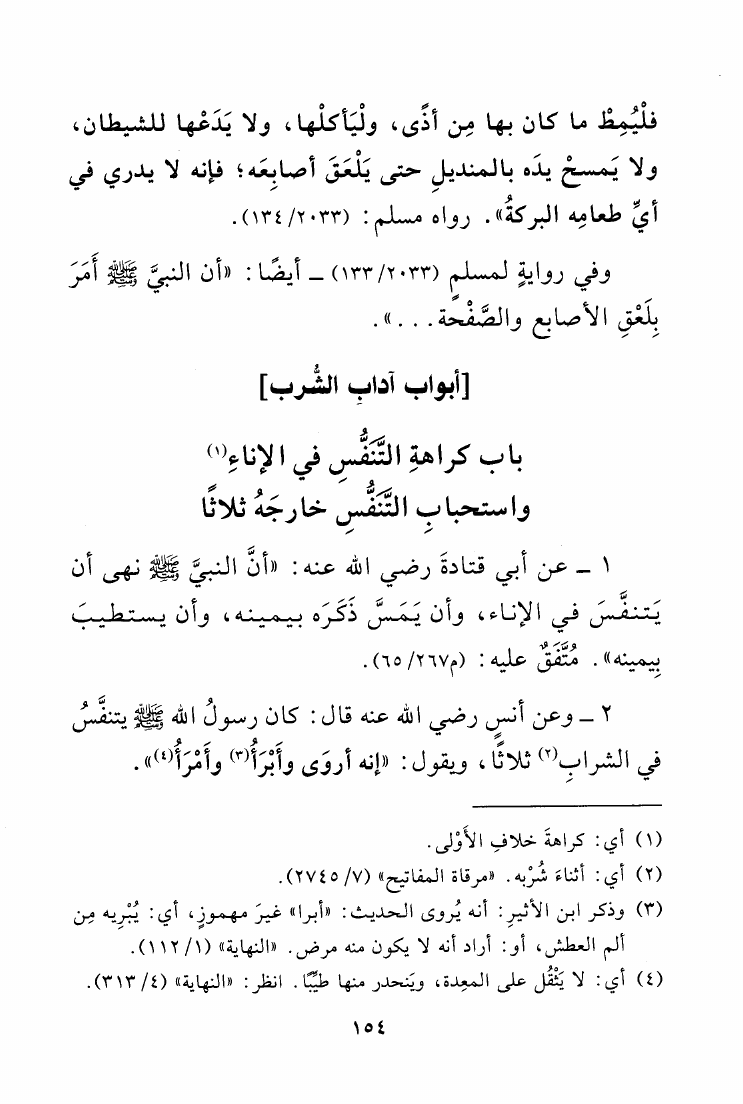 فلْيُمِطْ ما كان بها مِن أذًى، ولْيَأكلْها، ولا يَدَعْها للشيطان،
ولا يَمسحْ يدَه بالمنديلِ حتى يَلْعَقَ أصابِعَه؛ فإنه لا يدري في
أيِّ طعامِه البركةُ». رواه مسلم: (١٣٤/٢٠٣٣).
وفي روايةٍ لمسلمٍ (١٣٣/٢٠٣٣) ـ أيضًا: «أن النبيَّ ﷺ أَمَرَ
بِلَعْقِ الأصابع والصَّفْحة...».
[أبواب آدابِ الشُّرب]
باب كراهةِ التَّنَفُّسِ في الإناءِ(١)
واستحبابِ التَّنَفُّسِ خارجَهُ ثلاثًا
١ ـ عن أبي قتادةَ رضي الله عنه: «أنَّ النبيَّ ﷺ نهى أن
يَتنفَّسَ في الإناء، وأن يَمَسَّ ذَكَرَه بيمينه، وأن يستطيبَ
بِيمينه». مُتَّفَقٌ عليه: (م٦٥/٢٦٧).
٢ ـ وعن أنسٍ رضي الله عنه قال: كان رسولُ الله ﷺ يتنفَّسُ
في الشرابِ(٢) ثلاثًا، ويقول: «إنه أروَى وأَبْرَأُ(٣) وأَمْرَأُ(٤)».
(١) أي: كراهةَ خلافِ الأَوْلى.
(٢) أي: أثناءَ شُرْبه. «مرقاة المفاتيح» (٧/ ٢٧٤٥).
(٣) وذكر ابن الأثيرِ: أنه يُروى الحديث: «أبرا» غيرَ مهموزٍ، أي: يُبْرِيه مِن
ألم العطش، أو: أراد أنه لا يكون منه مرض. «النهاية» (١/ ١١٢).
(٤) أي: لا يَثْقُل على المعِدة، ويَنحدر منها طيِّبًا. انظر: «النهاية» (٤/ ٣١٣).
١٥٤